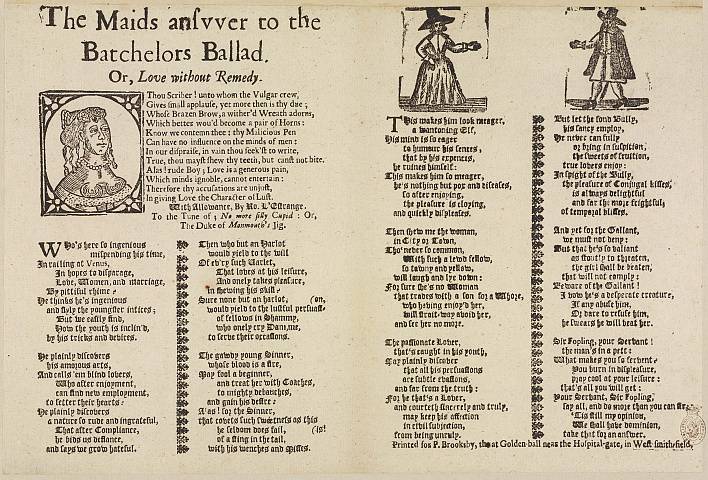 The Maids answer to the
Batchelors Ballad.
Or, Love without Remedy.
Thou Scriber! unto whom the Vulgar crew,
Gives small applause, yet more then is thy due;
Whose Brazen Brow, a wither'd Wreath adorns,
Which better wou'd become a pair of Horns:
Know we contemn thee: thy Malicious Pen
Can have no influence on the minds of men:
In our dispraise, in vain thou seek'st to write,
True, thou mayst shew thy teeth, but canst not bite.
Alas! rude Boy; Love is a generous pain,
Which minds ignoble, cannot entertain:
Therefore thy accusations are unjust,
In giving Love the Character of Lust.
With Allowance, By Ro. L'Estrange.
To the Tune of; No more silly Cupid: Or,
The Duke of Monmouth's Jig.
WHo's here so ingenious
mispending his time,
In railing at Venus,
In hopes to disparage,
Love, Women, and marriage,
By pittiful rhime:
He thinks he's ingenious
and slyly the youngster intices;
But we easily find,
How the youth is inclin'd,
by his tricks and devices.
He plainly discovers
his amorous arts,
And calls 'em blind lovers,
Who after enjoyment,
can find new employment,
to fetter their hearts:
He plainly discovers
a nature so rude and ingrateful,
That after Compliance,
he bids us defiance,
and says we grow hateful.
Then who but an Harlot
would yield to the will
Of ev'ry such Varlet,
That loves at his leisure,
And onely takes pleasure,
in shewing his skill:
Sure none but an harlot, (on,
would yield to the lustful perswasi-
of fellows in Shammy,
who onely cry Damme,
to serve their occasions.
The gawdy young Sinner,
whose blood is a fire,
May fool a beginner,
and treat her with Coaches,
to mighty debauches,
and gain his desire:
Alas! for the Sinner,
that covets such sweetness as this
he seldom does fail, (is!
of a sting in the tail,
with his wenches and Misses.
THis makes him look meager,
a wantoning Elf,
His mind is so eager
to humour his senses,
that by his expences,
he ruines himself:
This makes him so meager,
he's nothing but pox and diseases,
so after enjoying,
the pleasure is cloying,
and quickly displeases.
Then shew me the woman,
in City or Town,
Tho' never so common,
With such a lewd fellow,
so tawny and yellow,
will laugh and lye down:
For sure she's no Woman
that trades with a son for a Whore,
who having enjoy'd her,
will strait-way avoid her,
and see her no more.
The passionate Lover,
that's caught in his youth,
May plainly discover
that all his perswasions
are subtle evasions,
and far from the truth:
For he that's a Lover,
and courteth sincerely and truly,
may keep his affection
in civil subjection,
from being unruly.
But let the fond Bully,
his fancy employ,
He never can fully
or dying in suspition,
the sweets of fruition,
true lovers enjoy:
In spight of the Bully,
the pleasure of Conjugal kisses,
is always delightful
and far the more frightful;
of temporal blisses.
And yet for the Gallant,
we must not deny:
But that he's so valiant
as stoutly to threaten,
the girl shall be beaten,
that will not comply:
Beware of the Gallant!
I vow he's a desperate creature,
If any abuse him,
Or dare to refuse him,
he swears he will beat her.
Sir Fopling, your Servant!
the man's in a pett:
What makes you so fervent?
You burn in displeasure,
pray cool at your leisure:
that's all you will get:
Your Servant, Sir Fopling,
say all, and do more than you can Sir,
'Tis still my opinion,
We shall have dominion,
take that for an answer.
Printed for P. Brooksby, the at Golden-ball near the Hospital-gate, in West-smithfield,